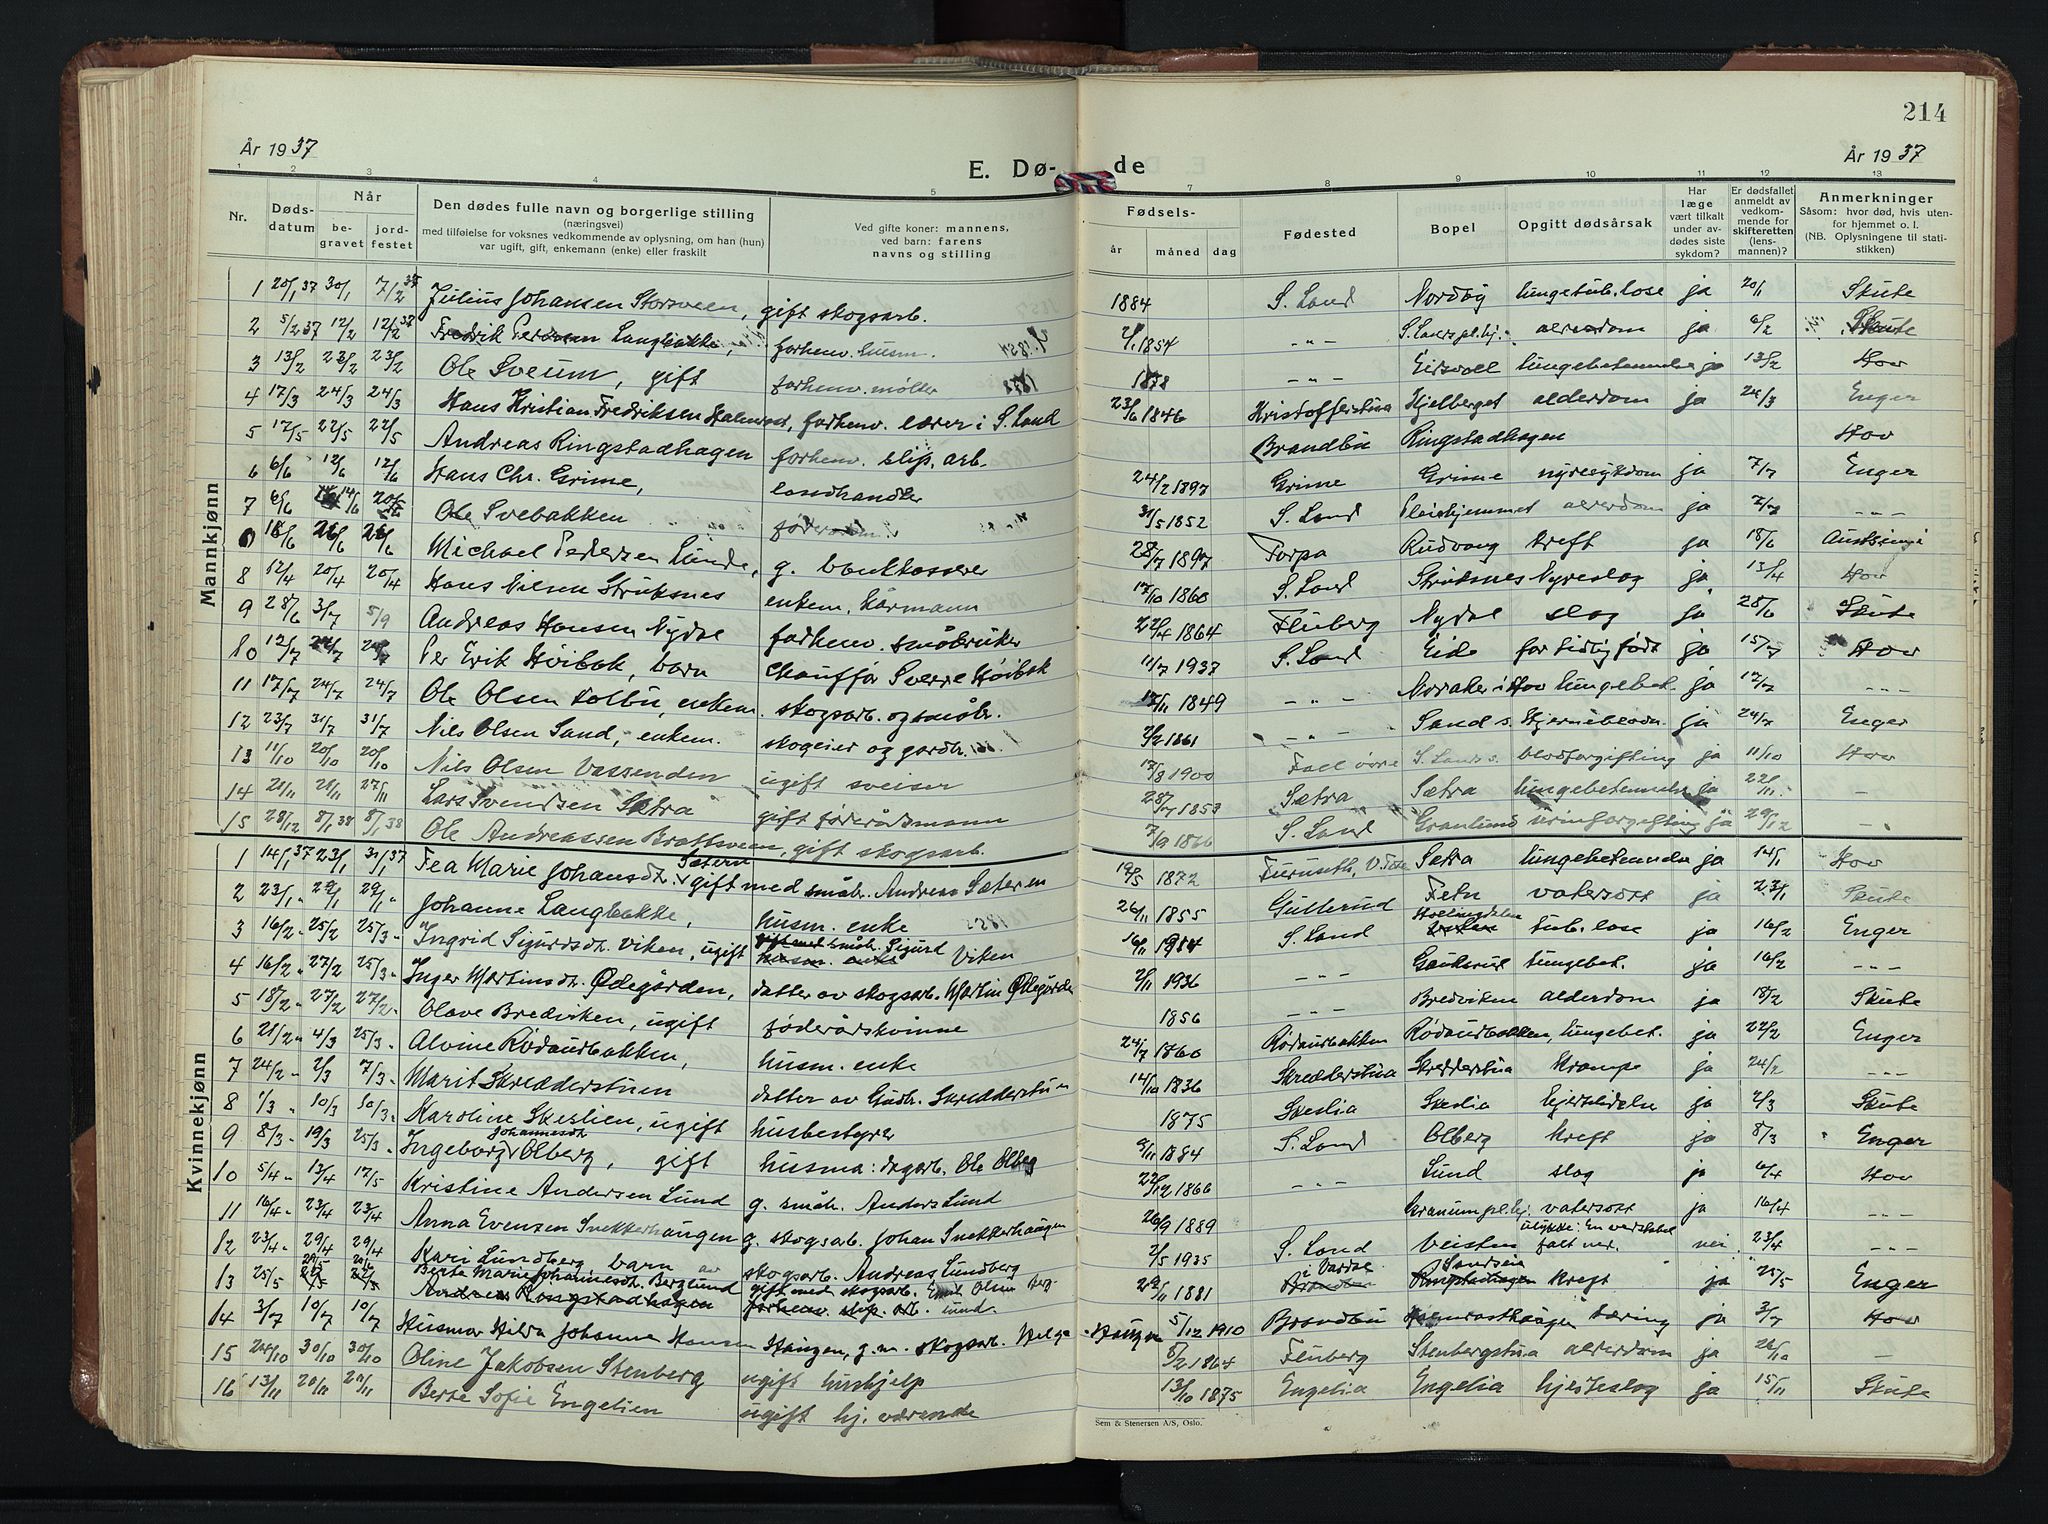 214
År 1937
E. Dø-
de
År 1937
1 2 3 4 5 7 8 9 10 11 12 13
Nr.
Døds-
datum
Når
be-
gravet
jord-
festet
Den dødes fulle navn og borgerlige stilling
(næringsvei)
med tilføielse for voksnes vedkommende av oplysning, om han (hun)
var ugift, gift, enkemann (enke) eller fraskilt
Ved gifte koner: mannens,
ved barn: farens
navns og stilling
Fødsels-
år måned dag
Fødested
Bopel
Opgitt dødsårsak
Har
læge
vært tilkalt
under av-
dødes siste
sykdom?
Er dødsfallet
anmeldt av
vedkom-
mende for
skifteretten
(lens-
mannen)?
Anmerkninger
Såsom: hvor død, hvis uten-
for hjemmet o. l.
(NB. Oplysningene til stati-
stikken)
Mannkjønn
1 20/1 37 30/1 7/2 37 Julius Johansen Storsveen, gift skogsarb. 1884 S. Land Nordby lungetub.lose ja 20/1 Skute
2 5/2 37 12/2 12/2 37 Fredrik Langbakke, forhenv. husm. 2/1 1854 -"- S. Lands pl.hj. ja 6/2 Skute
3 13/2 23/2 23/2 Ole Sveum, gift forhenv. møller 1878 -"- Eidsvoll lungebetennelse ja 13/2 Hov
4 17/3 24/3 24/3 Hans Kristian Fredriksen forhenv. lærer i S. Land 23/6 1846 Hjelberget alderdom ja 24/3 Enger
5 17/5 22/5 22/5 Andreas Ringstadhagen forhenv. slip. arb. Brandbu Ringstadhagen Hov
6 6/6 12/6 12/6 Hans Chr. Grime, landhandler 24/2 1897 Grime Grime nyresykdom ja 7/7 Enger
7 6/6 14/6 20/6 Ole Svebakken 31/5 1852 S. Land Pleiehjemmet ja -"-
18/6 26/6 26/6 Michael Pedersen Lunde, g. bankkasserer 28/7 1897 Torpa Rudvang kreft ja 18/6
8 12/4 20/4 20/4 Hans Nilsen Struksnes enkem, kårmann 17/10 1860 S. Land Struksnes Nyreslag ja 13/4 Hov
9 28/6 3/7 5/9 Andreas Hansen Nydal forhenv. småbruker 22/4 1864 Fluberg Nydal slag ja 28/6 Skute
10 12/7 24/7 24/7 Per Erik Høibak, barn Chauffør Sverre Høibak 11/7 1937 S. Land Eide for tidlig født ja 15/7 Hov
11 17/7 24/7 24/7 Ole Olsen Kolbu, enkem. skogsarb. og småbr. 17/11 1849 -"- Noraker i Hov lungebet. ja 17/7 -"-
12 23/7 31/7 31/7 Nils Olsen Sand, enkem. skogeier og gardbr. 2/2 1861 -"- Sand s. Hjerneblødn. ja 24/7 Enger
13 11/10 20/10 20/10 Nils Olsen Vassenden ugift sveiser 17/8 1900 Fall øvre S. Lands s. blodforgiftning ja 11/10 Hov
14 21/11 27/11 Lars Svendsen Sætra gift føderådsmann 28/7 1853 Sætra Sætra lungebetennelse ja 22/11 -
15 28/12 8/1 38 8/1 38 Ole Andreassen Brattsveen, gift skogsarb. 7/9 1866 S. Land Granlund urinforgiftning ja 29/12 -
Kvinnekjønn
1 14/1 37 23/1 31/1 37 Fea Marie Johansdtr. Sætern gift med småbr. Andreas Sæteren 12/5 1872 Furuseth, V. Toten Sætra lungebetennelse ja 14/1 Hov
2 23/1 29/1 29/1 Johanne Langbakke, husm. enke 26/11 1855 Gullerud Fetn vatersott ja 23/1 Skute
3 16/2 25/2 25/3 Ingrid Sigurdsdtr. Viken, ugift Sigurd Viken 16/11 1984 S. Land tub. lose ja 16/2 Enger
4 16/2 27/2 25/3 Inger Martinsdtr. Ødegården, datter av skogsarb. Martin Ødegården 2/11 1936 -"- Gauksrud lungebet. ja 16/2 -"-
5 18/2 27/2 27/2 Olave Bredviken, ugift føderådskvinne 1856 -"- Bredviken alderdom ja 18/2 Skute
6 21/2 4/3 25/3 Alvine Rødaurbakken, husm. enke 24/7 1860 Rødaurbakken Rødaurbakken, lungebet. ja 22/2 Enger
7 24/2 2/3 7/3 Marit Skrædderstuen datter av Gudbr. Skrædderstuen 14/10 1836 Skrædderstua Skredderstua Krampe ja 24/2 -"-
8 1/3 10/3 10/3 Karoline Skeslien, ugift husbestyrer 1875 Skeslia Skeslia hjertelidelse ja 2/3 Skute
9 8/3 19/3 25/3 Ingeborg Johannesdtr Olberg, gift husmor: dagarb. Ole Olberg 9/11 1884 S. Land Olberg kreft ja 8/3 Enger
10 5/4 13/4 17/5 Kristine Andersen Lund g. småbr. Anders Lund 22/12 1866 -"- Lund slag ja 6/4 Hov
11 16/4 23/4 23/4 Anna Evensen Snekkerhaugen g. skogsarb. Johan Snekkerhaugen 26/9 1889 Granum pl.hj. vatersott ja 16/4 -"-
12 23/4 29/4 29/4 Kari Lundberg barn av skogsarb. Andreas Lundberg 2/5 1935 S. Land Veisten ulykke: En vedstabel falt ned. nei 23/4 -"-
13 25/5 Berte Marie Johannesdtr. Berglund gift med skogsarb. 29/11 1881 i Vardal kreft ja 25/5 Enger
14 3/7 10/7 10/7 Husmor Hilda Johanne Hansen Haugen, g.m. skogsarb. Helge Haugen 5/12 1910 Brandbu tæring ja 3/7 Hov
15 24/10 30/10 30/10 Oline Jakobsen Stenberg ugift hushjelp 5/2 1864 Fluberg Stenbergstua alderdom ja 26/10 -
16 13/11 20/11 20/11 Berte Sofie Engelien ugift hj. værende 13/10 1875 Engelia Engelia hjerteslag ja 15/11 Skute
Sem & Stenersen A/S, Oslo.